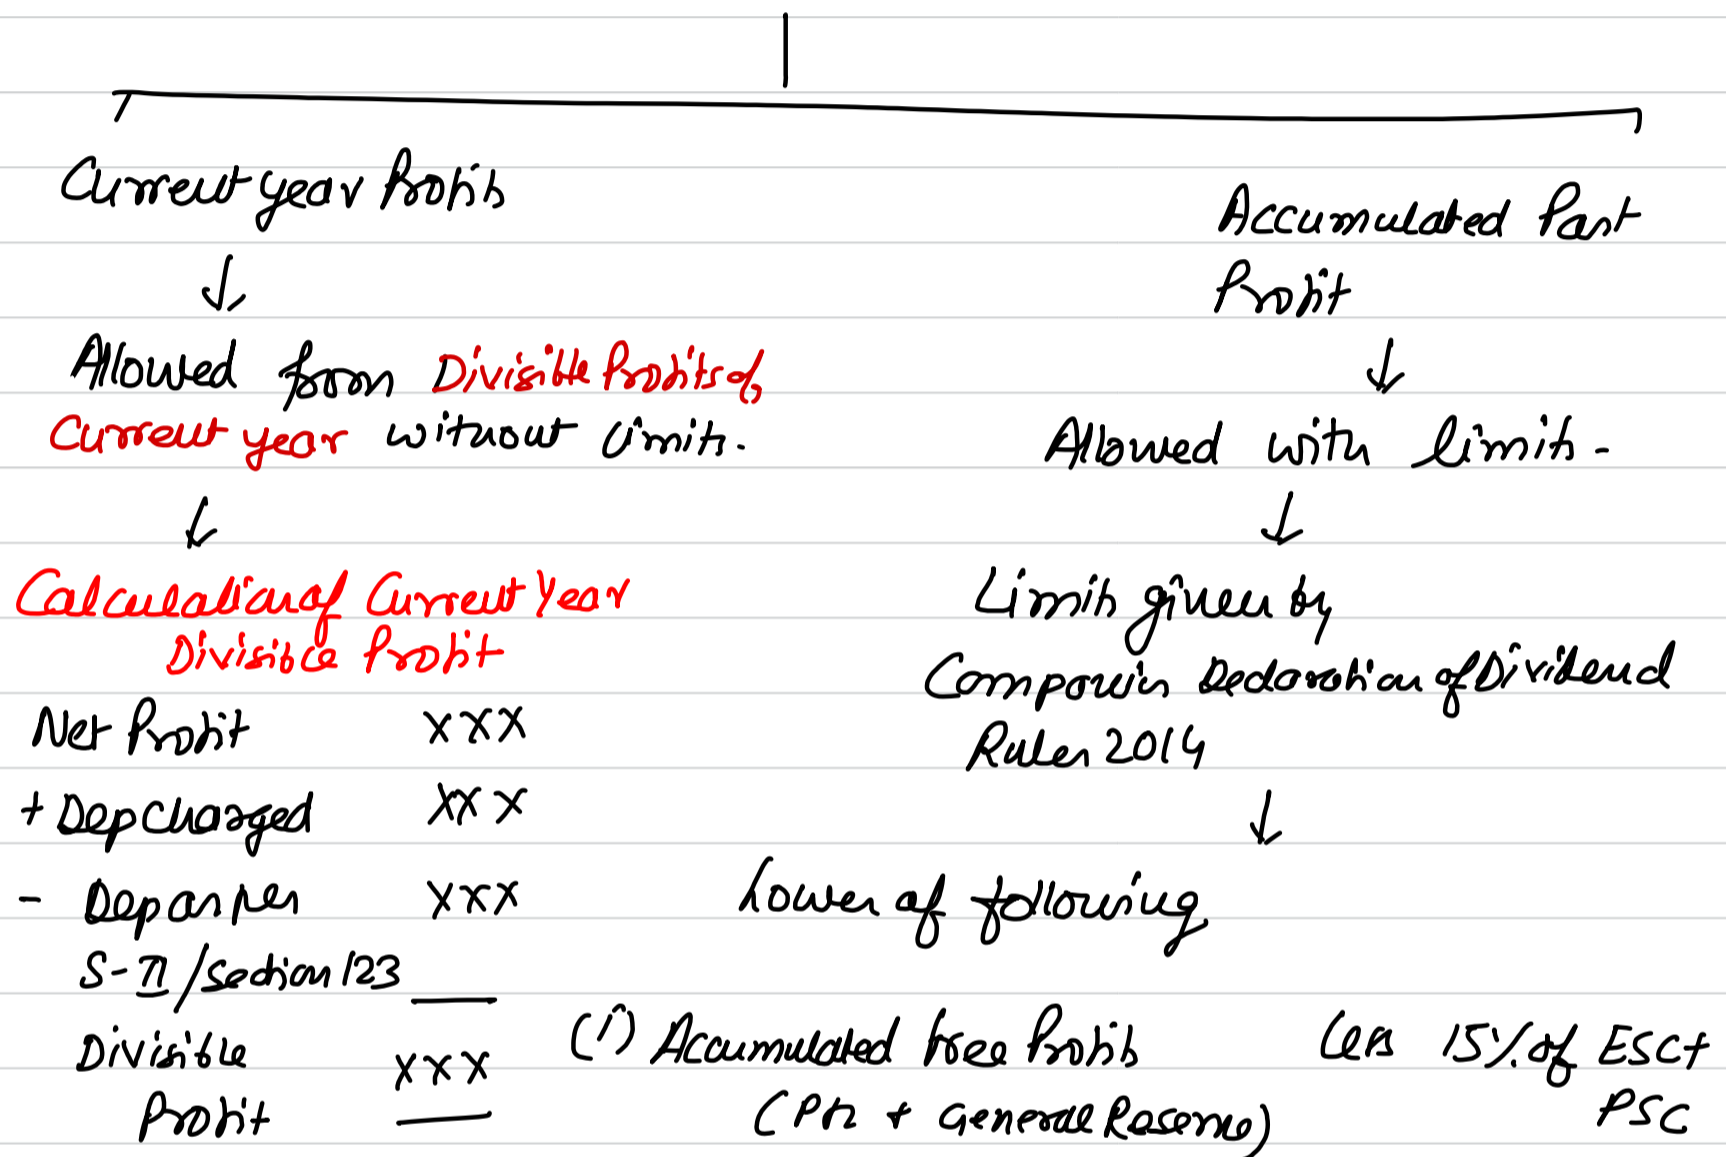 Current year Profits
Allowed from Divisible Profits of
Current year without limits.
Calculation of Current Year
Divisible Profit
Net Profit XXX
+ Dep charged XXX
- Dep as per XXX
S-II/Section 123
Divisible XXX
Profit
Accumulated Past
Profit
Allowed with limits-
Limits given by
Companies Declaration of Dividend
Rules 2014
Lower of following
(i) Accumulated free Profits Less 15% of ESC+
PSC
+ General Reserve)